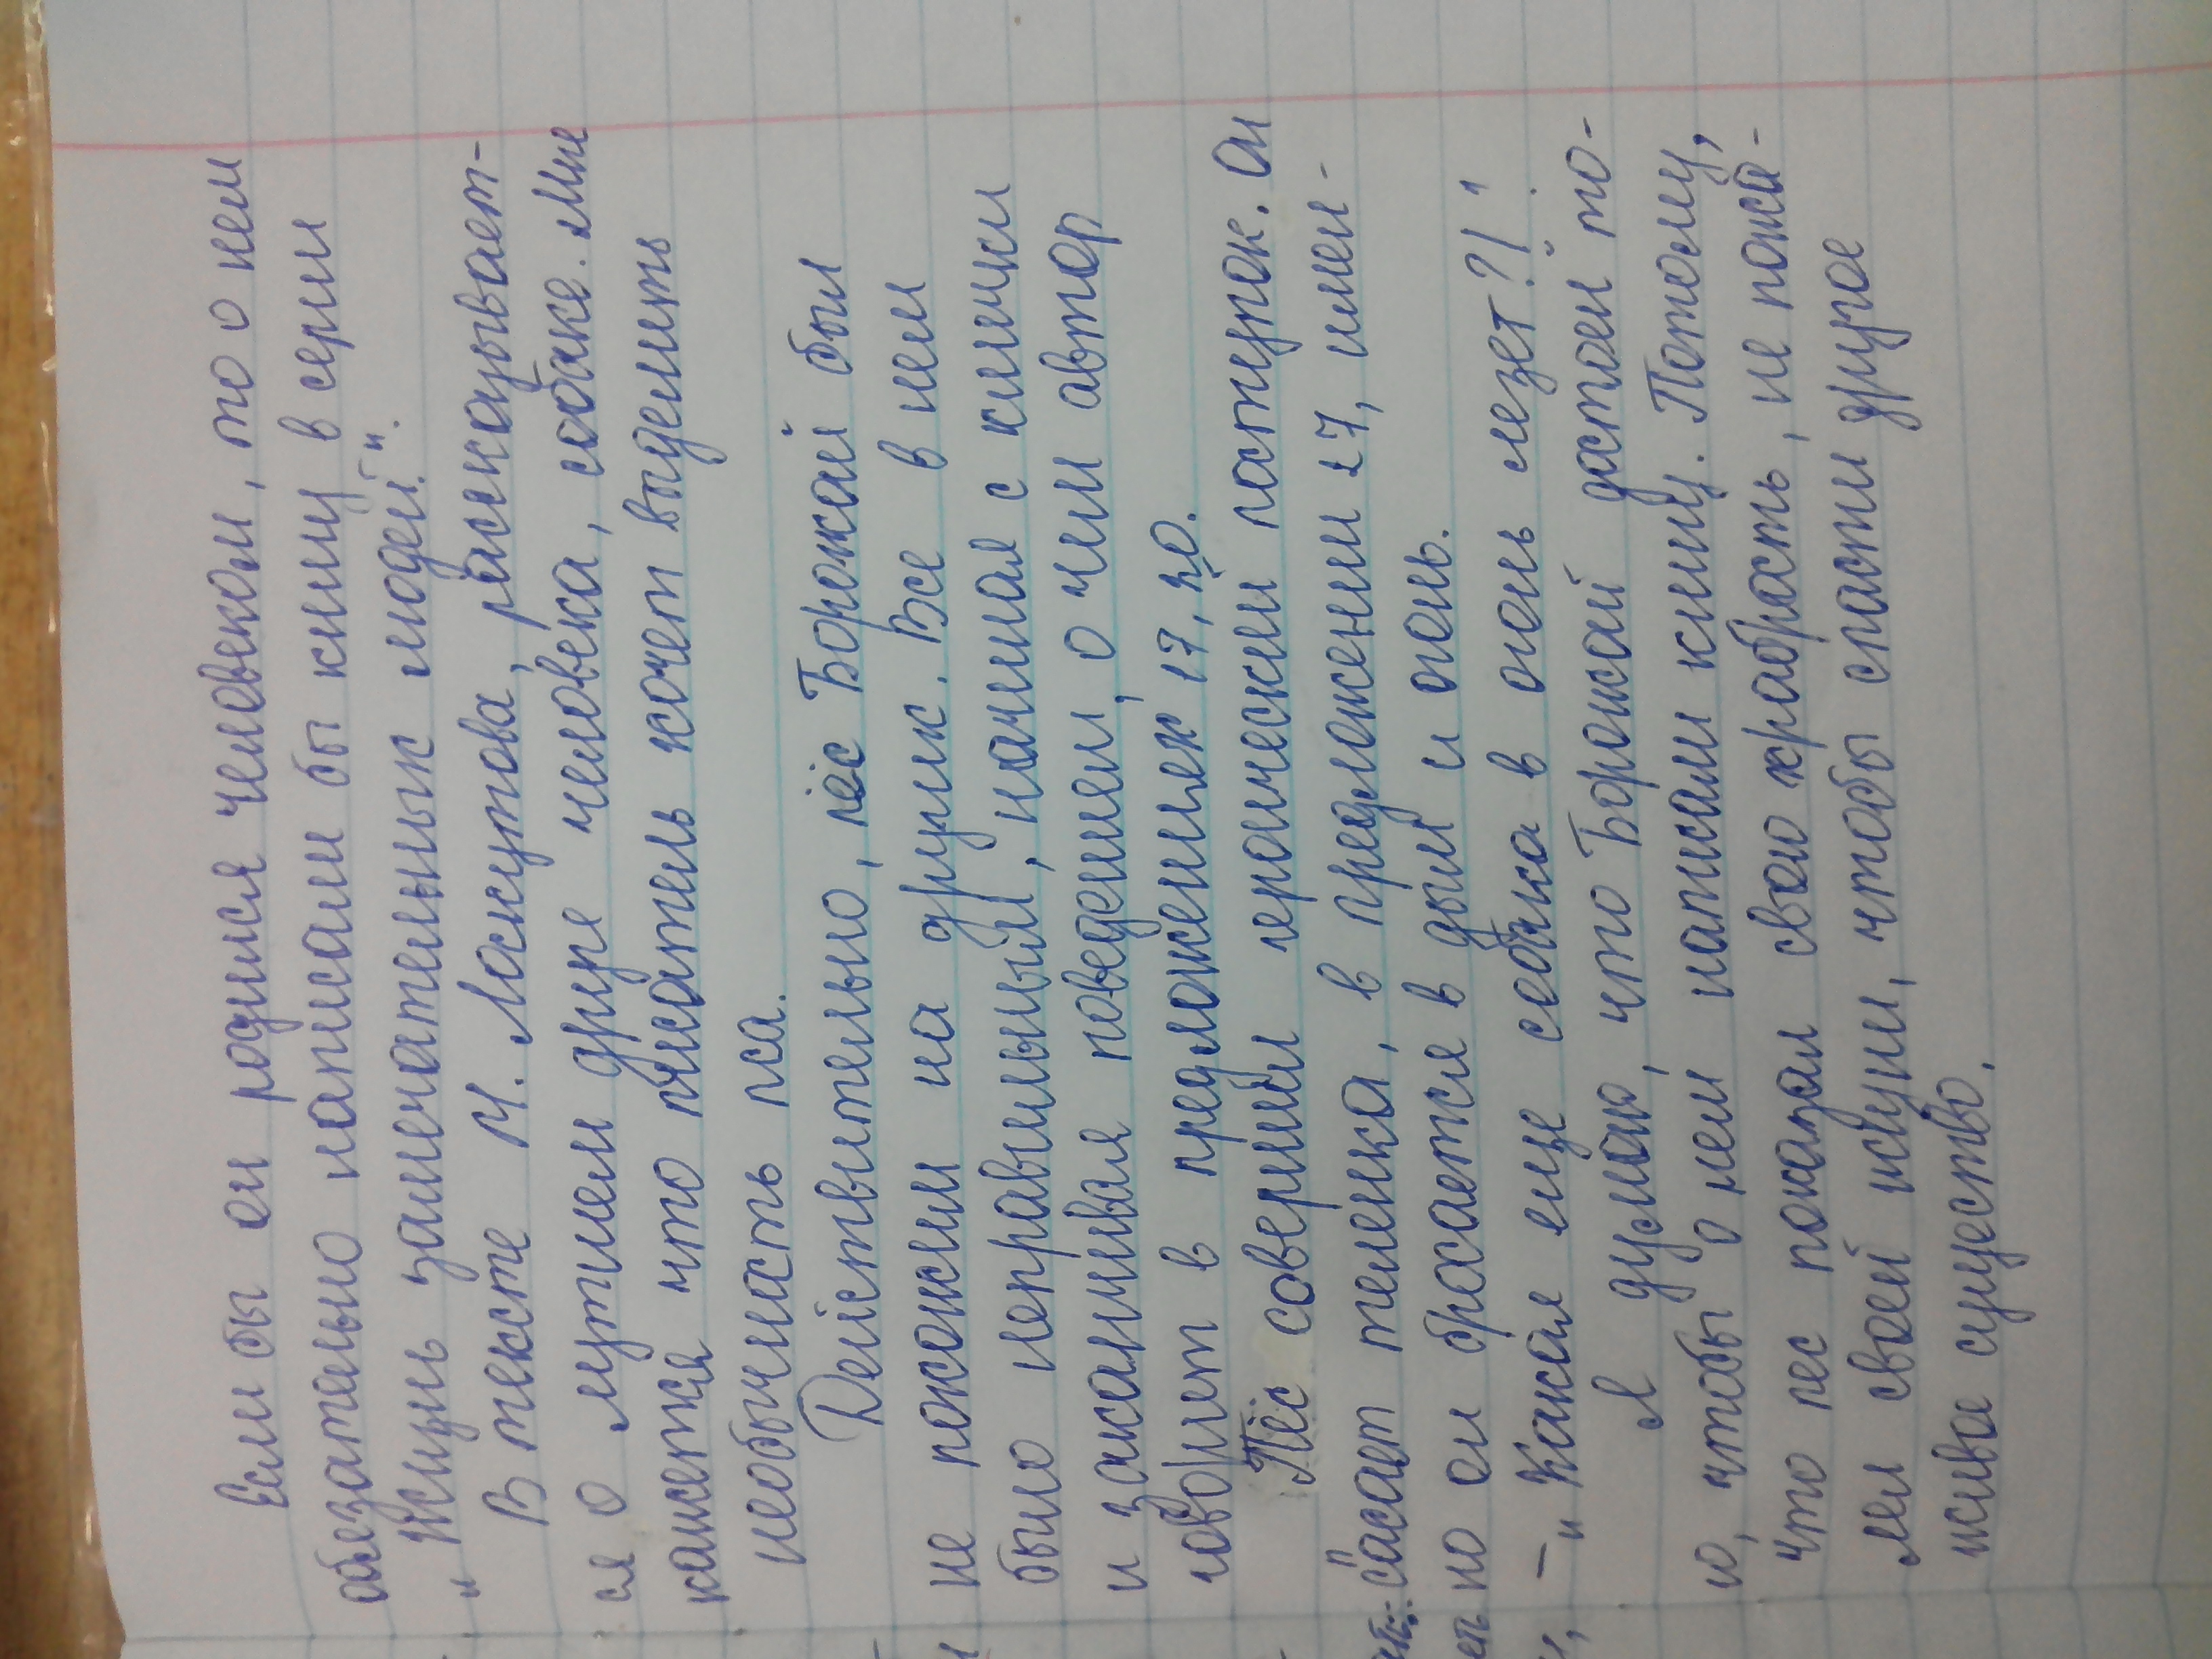 Если бы он родился человеком, то о нем
обязательно написали бы книгу в серии
"Жизнь замечательных людей".
В тексте М. Лоскутова, расказывает-
ся о лутшем друге человека, собаке. Мне
кажется что писатель хочет выделить
необычность пса.
Действительно, пёс Борожай был
не похожим на других. Все в нем
было неправильным, начиная с клички
и заканчивая поведением, о чем автор
говорит в предложениях 17, 20.
Пёс совершил героический поступок. Он
спасает теленка, в предложении 27, имен-
но он бросается в дым и огонь.
– "Какая еще собака в огонь лезет?!"
Я думаю, что Борожай достоен то-
го, чтобы о нем написали книгу. Потому,
что пес показал свою храбрость, не пожа-
лел своей жизни, чтобы спасти другое
живое существо.